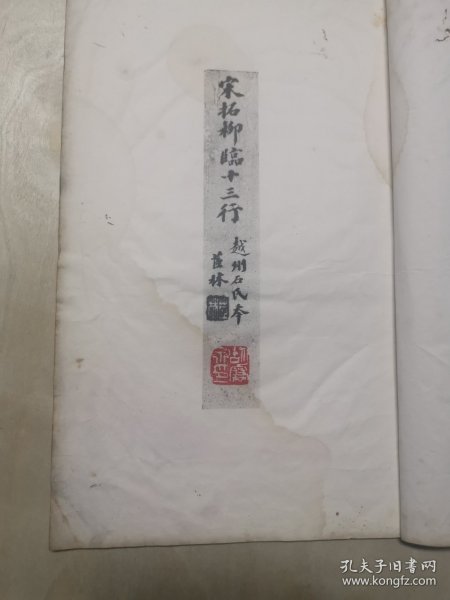 宋拓柳臨十三行
越州石氏本
孔夫子旧书网
www.kongfz.com